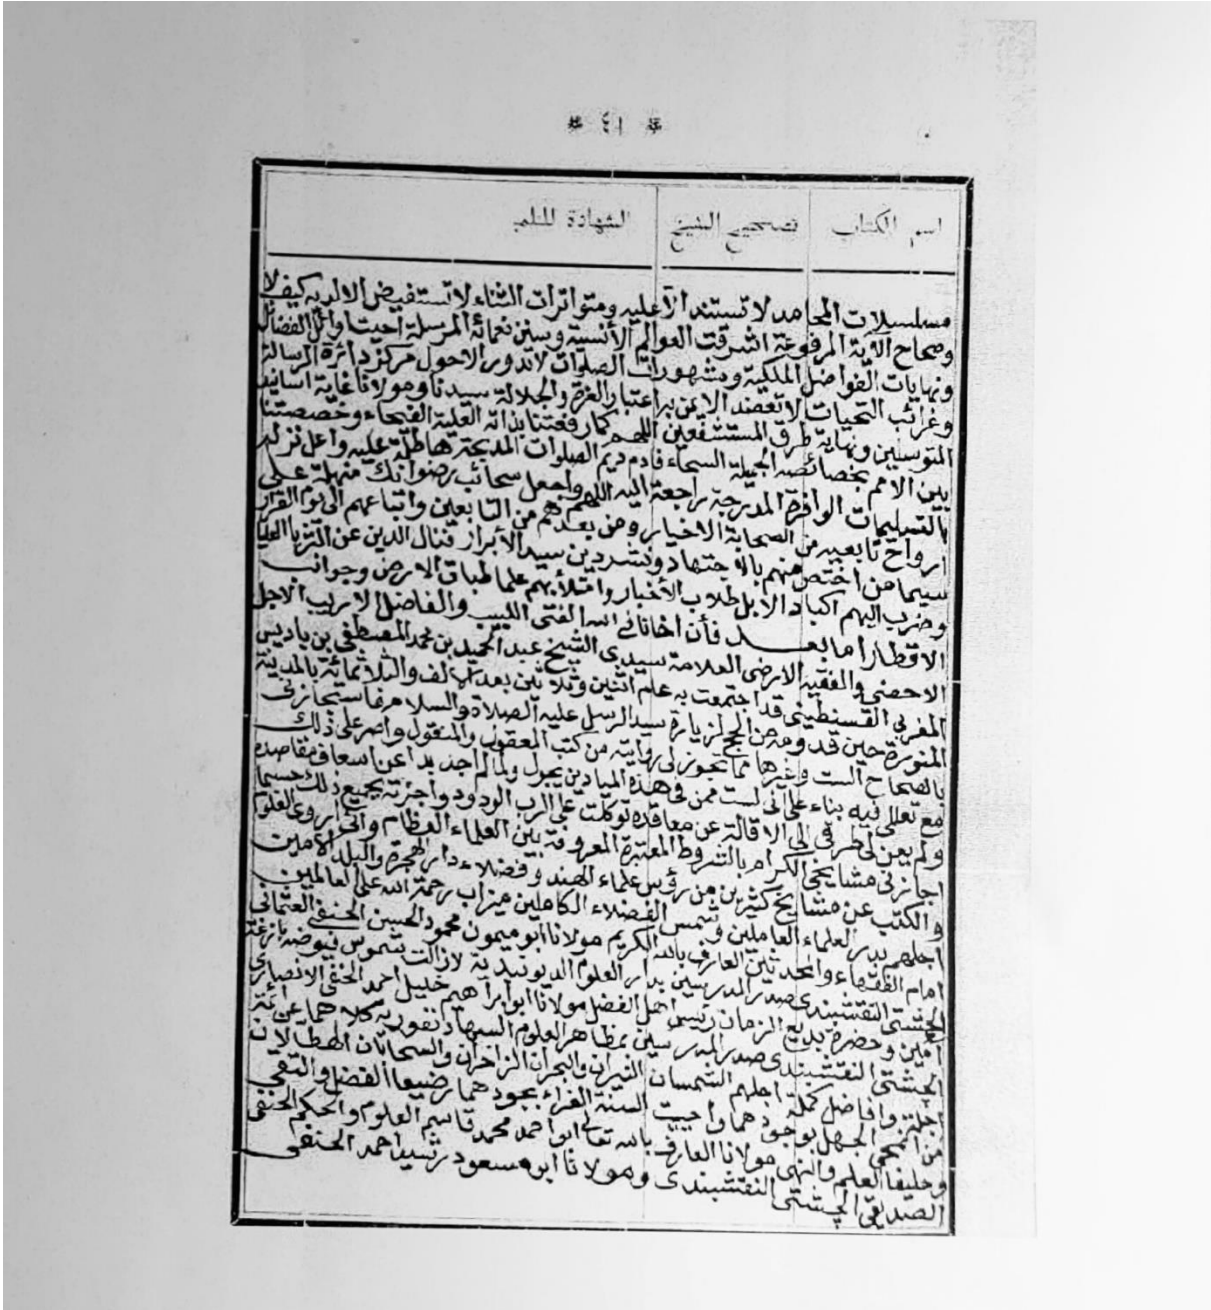 * ٤١ *
اسم الكتاب تصحيح الشيخ الشهادة للتلميذ
مسلسلات المحامد لا تستند الا عليه ومتواترات الثناء لا تستفيض الا لديه كيف لا
وصحاح الآية المرفوعة اشرقت العوالم الأنسية وبسنن نعمائه المرسلة أحيت اوائل الفضائل
ونهايات الفواضل الملكية ومشهورات الصلوات لا تدور الا حول مركز دائرة الرسالة
وغرائب التحيات لا تعضد الا بمن به اعتبار العزة والجلالة سيدنا ومولانا غاية اسانيد
المتوسلين ونهاية طرق المستشفعين اللهم كما رفعتنا بذاته العلية الفيحاء وخصصتنا
بين الامم بخصائصه الجميلة السمحاء فأدم ديم الصلوات المدبجة هاطلة عليه وأعل نزله
بالتسليمات الوافرة المدرجة راجعة اليه اللهم واجعل سحائب رضوانك منهلة على
ارواح تابعيه من الصحابة الاخيار ومن بعدهم من التابعين واتباعهم الى يوم القرار
سيما من اختص منهم بالاجتهاد وتشرد بن سيد الأبرار فنال الدين عن الثريا العليا
وضرب اليهم اكباد الابل طلاب الأخبار وامتلأ بهم علما طباق الارض وجوانب
الاقطار أما بعد فأن اخانا في الله الفتى اللبيب والفاضل الاريب الاجل
الاحضى والفقيه الارضى العلامة سيدي الشيخ عبد الحميد بن محمد المصطفى بن باديس
المغربي القسنطيني قد اجتمعت به عام اثنين وثلاثين بعد الالف والثلاثمائة بالمدينة
المنورة حين قدومه من الحج لزيارة سيد الرسل عليه الصلاة والسلام فاستجازني
بالصحاح الست وغيرها مما تجوز لي روايته من كتب المعقول والمنقول واصر على ذلك
مع تعللي فيه بناء على اني لست ممن في هذه الميادين يجول ولما لم اجد بدا عن اسعاف مقاصده
ولم يعن لي طرق الى الاقالة عن معاقده توكلت على الرب الودود واجزته بجميع ذلك حسبما
اجازني مشايخي الكرام بالشروط المعتبرة المعروفة بين العلماء العظام واني اروى العلوم
والكتب عن مشايخ كثيرين من رؤس علماء الهند وفضلاء دار الهجرة والبلد الامين
اجلهم بدر العلماء العاملين وشمس الفضلاء الكاملين ميزاب رحمة الله على العالمين
امام الفقهاء والمحدثين العارف بالله الكريم مولانا ابو ميمون محمود الحسن الحنفي العثماني
الچشتى النقشبندى صدر المدرسين بدار العلوم الديوبندية لا زالت شموس فيوضه بازغة
آمين وحضرة بديع الزمان رئيس اهل الفضل مولانا ابو ابراهيم خليل احمد الحنفى الانصارى
الچشتى النقشبندى صدر المدرسين بمظاهر العلوم السهارنفورية كلاهما عن أئمة
اجلة وافاضل كملة اجلهم الشمسان النيران والبحران الزاخران والسحابتان الهطالان
من امحى الجهل بوجودهما واحييت السنة الغراء بجودهما رضيعا الفضل والتقى
وحليفا العلم والنهى مولانا العارف بالله تعالى ابو احمد محمد قاسم العلوم والحكم الحنفى
الصديقي الچشتى النقشبندى ومولانا ابو مسعود رشيد احمد الحنفى